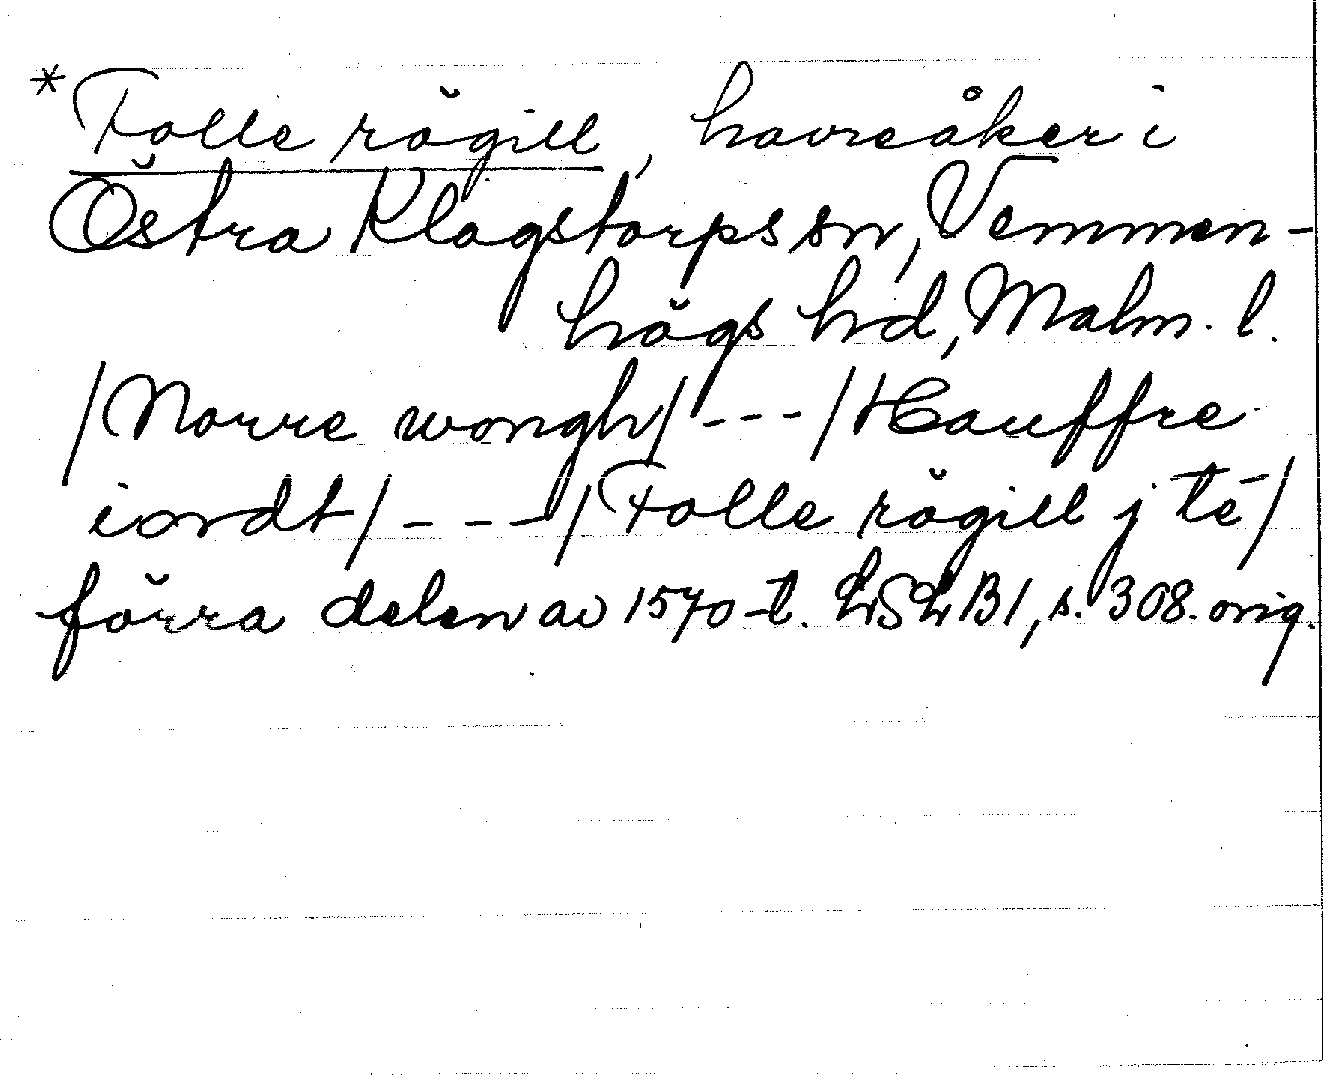 *Folle rögill, havreåker i
Östra Klagstorps sn, Vemmen-
högs hd, Malm. l.
/Norre wongh/ --- /Hauffre
iordt/ --- /Folle rögill j té/
förra delen av 1570-t. LSLB1, s. 308. orig.